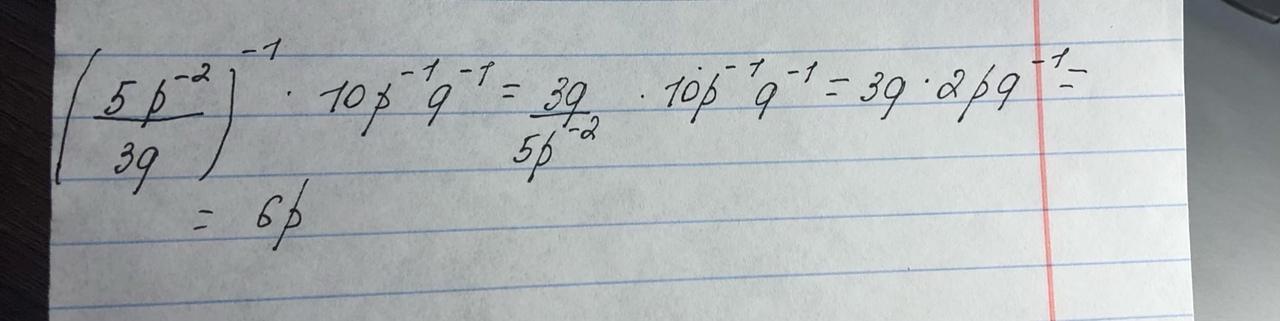 (5p⁻²/3q)⁻¹ · 10p⁻¹q⁻¹ = 3q/5p⁻² · 10p⁻¹q⁻¹ = 3q · 2pq⁻¹ =
= 6p